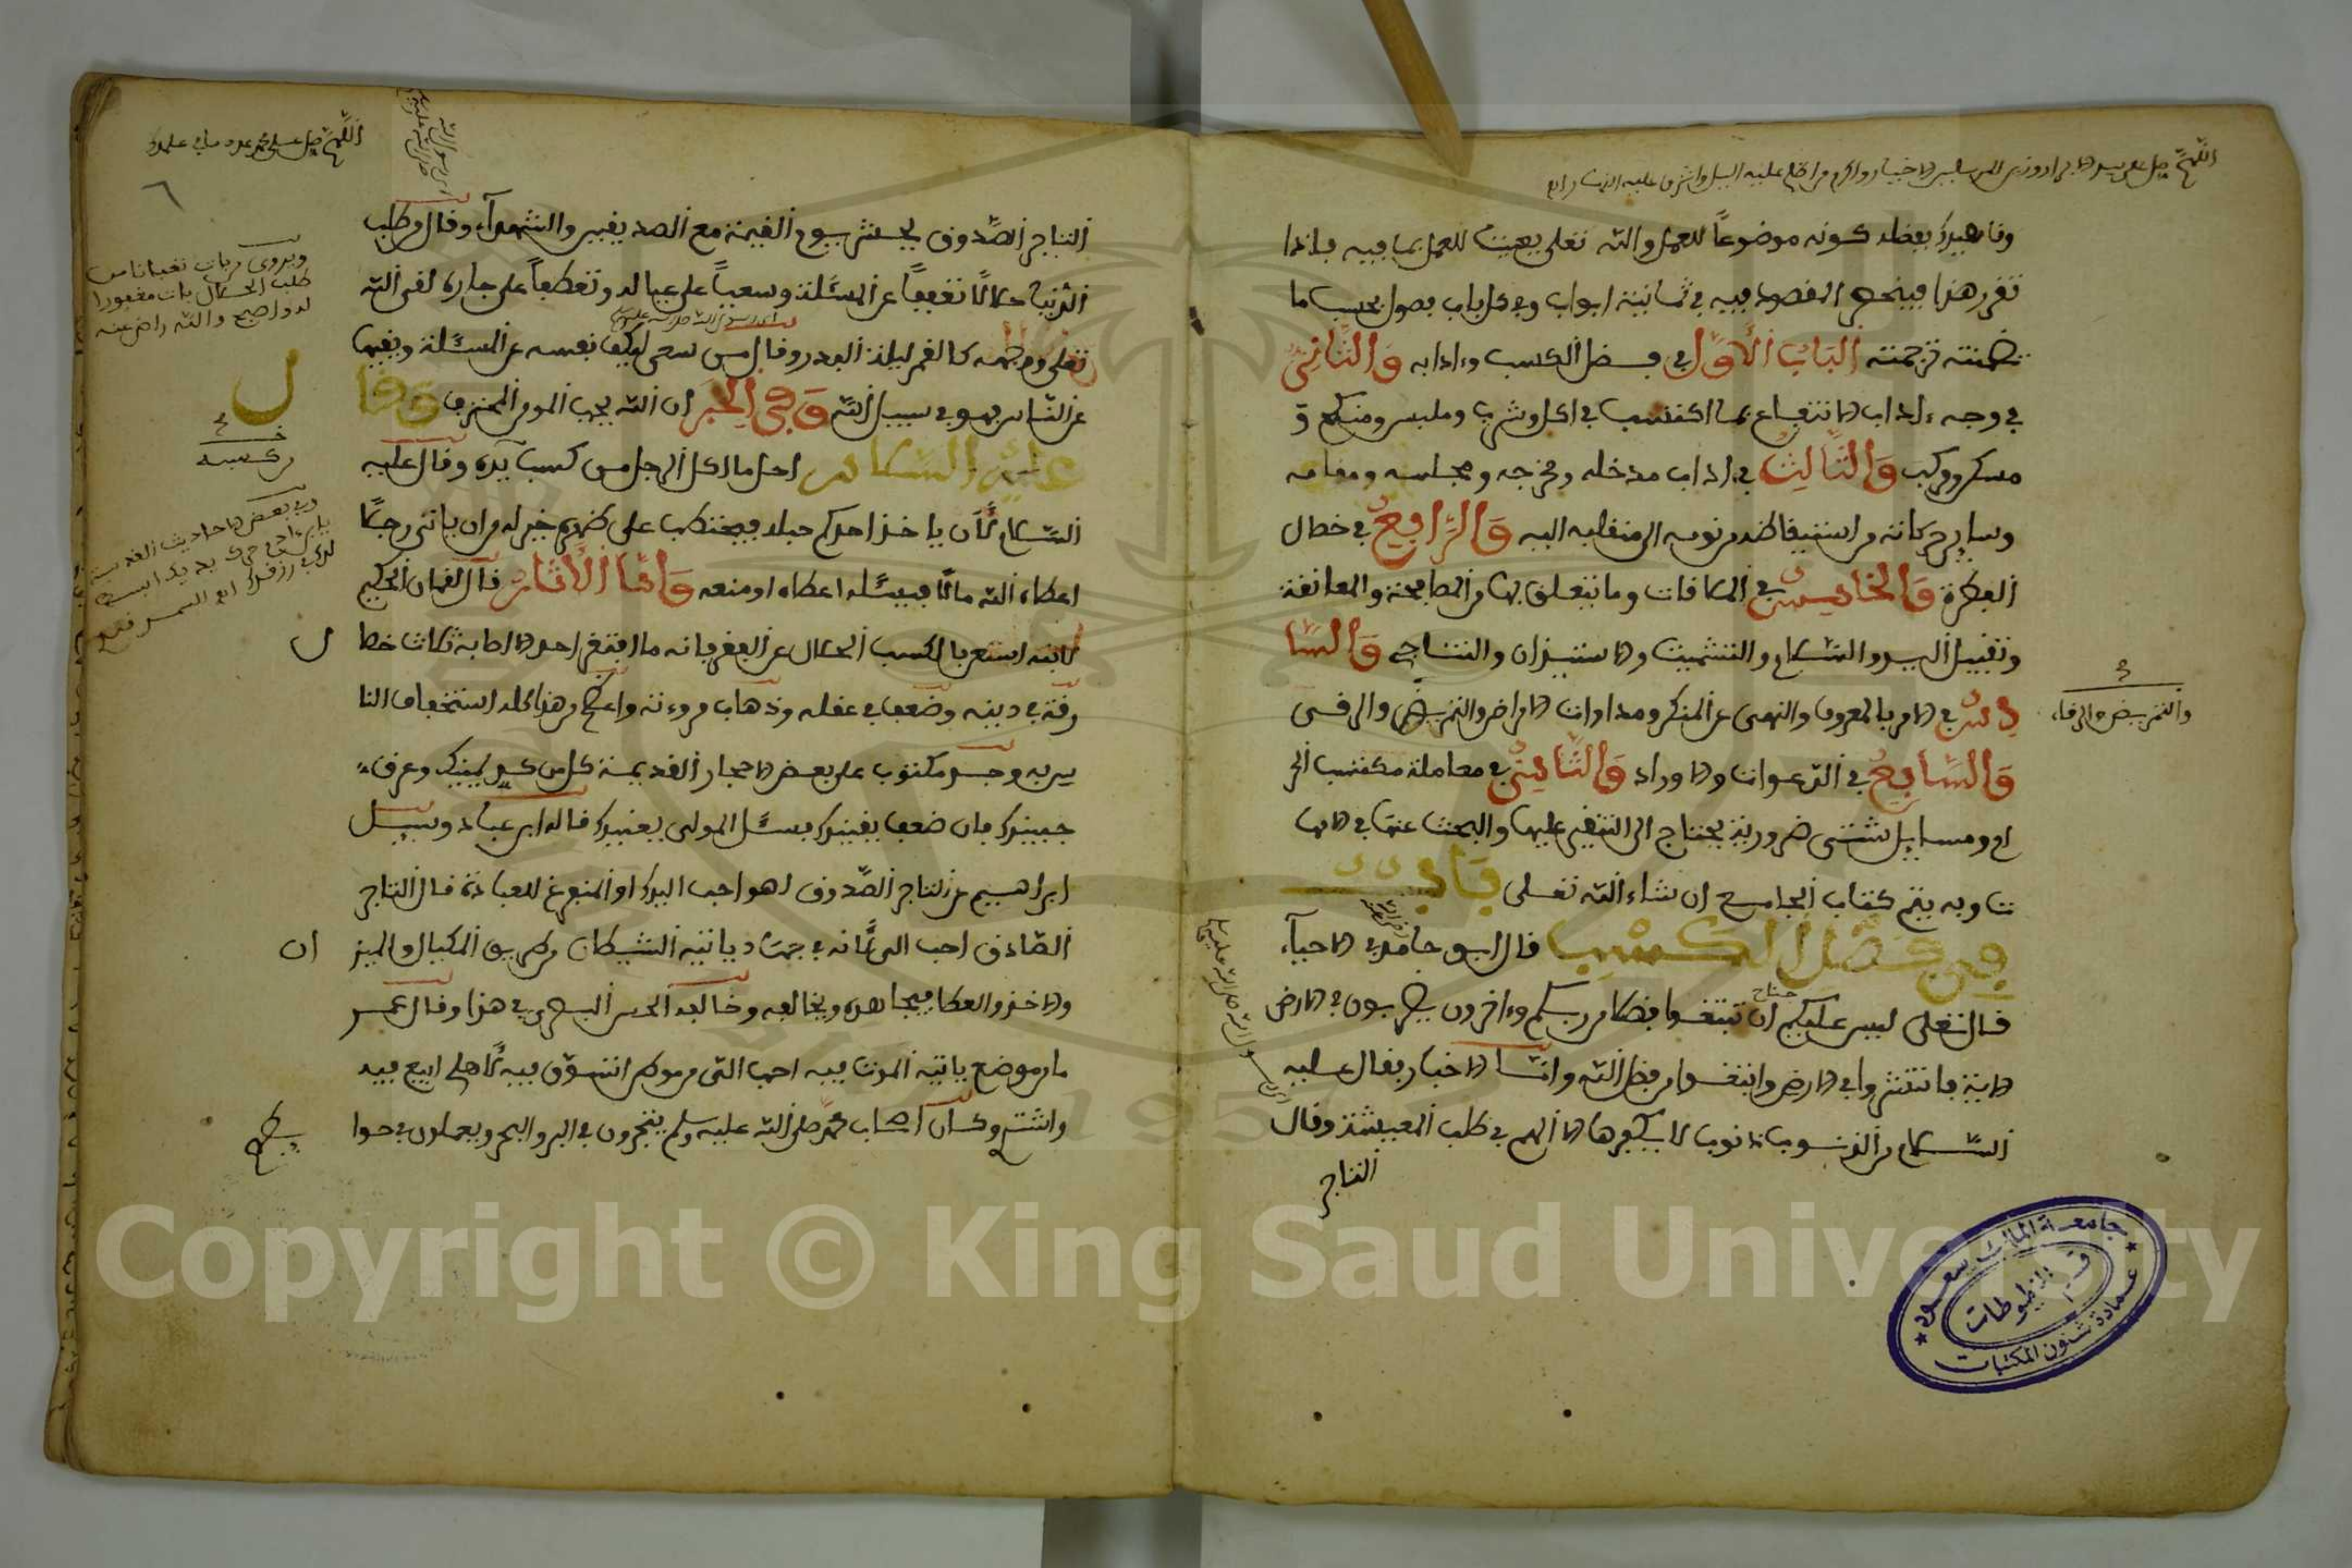 اللهم صل على سيد الابرار وزين المرسلين الاخيار واكرم من اظلم عليه اليل واشرق عليه النهار
وناهيك بفضله كونه موضوعا للعمل والله تعلى يعيننا للعمل بما فيه فاذا
تقرر هذا فينحصر المقصود فيه في ثمانية ابواب وفي كل باب فصول بحسب ما
تضمنته ترجمته الباب الأول في فضل الكسب وءادابه والثاني
في وجه ءاداب الانتفاع بما اكتسب في اكل وشرب وملبس ومنكح و
مسكن ومركب والثالث في ءاداب مدخله ومخرجه ومجلسه ومقامه
وساير حركاته من استيقاظه من نومه الى منقلبه اليه والرابع في خصال
الفطرة والخامس في الملاقات وما يتعلق بها من المصافحة والمعانقة
وتقبيل اليد والسلام والتشميت والاستيذان والتناجي والسا
دس في الامر بالمعروف والنهي عن المنكر ومداوات الامراض والتمريض والرقى
والتمريض والرقاء
والسابع في الدعوات والاوراد والثامن في معاملة مكتسب الحر
ام ومسايل شتى ضرورية يحتاج الى التنقير عليها والبحث عنها في الاما
ت وبه يتم كتاب الجامع ان شاء الله تعلى باب
في فضل الكسب قال ابو حامد في الاحياء
قال تعلى ليس عليكم جناح ان تبتغوا فضلا من ربكم وءاخرون يضربون في الارض
الاية فانتشروا في الارض وابتغوا من فضل الله واما الاخبار فقال عليه
السلام من الذنوب ذنوب لا يكفرها الا الهم في طلب المعيشة وقال
التاجر
جامعة الملك سعود
قسم المخطوطات
عمادة شئون المكتبات
اللهم صل على محمد عدد ما في علمك
٦
التاجر الصدوق يحشر يوم القيمة مع الصديقين والشهداء وقال من طلب
الدنيا حلالا تعففا عن المسئلة وسعيا على عياله وتعطفا على جاره لقي الله
تعلى ووجهه كالقمر ليلة البدر وقال من سعى ليكف نفسه عن المسئلة ويغنيها
عن الناس فهو في سبيل الله وفي الخبر ان الله يحب المومن المحترف وقا
ل
عليه السلام احل ما اكل الرجل من كسب يده وقال عليه
السلام لأن ياخذ احدكم حبله فيحتطب على ظهره خير له من ان ياتي رجلا
اعطاه الله مالا فيسئله اعطاه او منعه واما الأثار قال لقمان الحكيم
لابنه استعن بالكسب الحلال عن الفقر فانه ما افتقر احد الا اصابه ثلاث خصا
ل
رقة في دينه وضعف في عقله وذهاب مروءته واعظم من هذا كله استخفاف النا
س به وجد مكتوب على بعض الاحجار القديمة كل من كد يمينك وعرق
جبينك فان ضعف يقينك فسئل المولى يعينك قاله ابن عباد وسيل
ابراهيم عن التاجر الصدوق اهو احب اليك او المتفرغ للعبادة قال التاجر
الصادق احب الي لأنه في جهاد ياتيه الشيطان من طريق المكيال والميز
ان
والاخذ والعطا فيجاهده ويخالفه وخالفه الحسن البصري في هذا وقال عمر
ما من موضع ياتيني الموت فيه احب الي من موطن اتسوق فيه لأهلي ابيع فيه
واشتري وكان اصحاب محمد صلى الله عليه وسلم يتجرون في البر والبحر ويعملون في حوا
يطهم
ويروى من بات تعبانا من
طلب الحلال بات مغفورا
له واصبح والله راض عنه
من كسبه
Copyright © King Saud University
1957